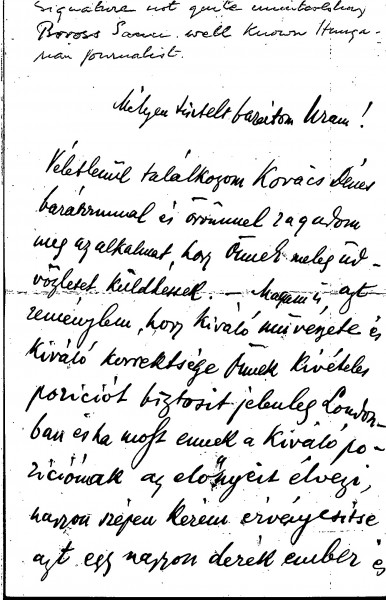 Signature not quite
Boross Samu. well known Hunga-
rian journalist.
Mélyen tisztelt barátom Uram!
Véletlenül találkozom Kovács Dénes
barátommal és örömmel ragadom
meg az alkalmat, hogy Önnek meleg üd-
vözletet küldhessek. – Magam is, azt
remélem, hogy kiváló müvészete és
kiváló korrektsége Önnek kivételes
poziciót biztosit jelenleg London-
ban és ha most ennek a kiváló po-
ziciónak az előnyeit élvezi,
nagyon szépen kérem érvényesitse
azt egy nagyon derék ember és